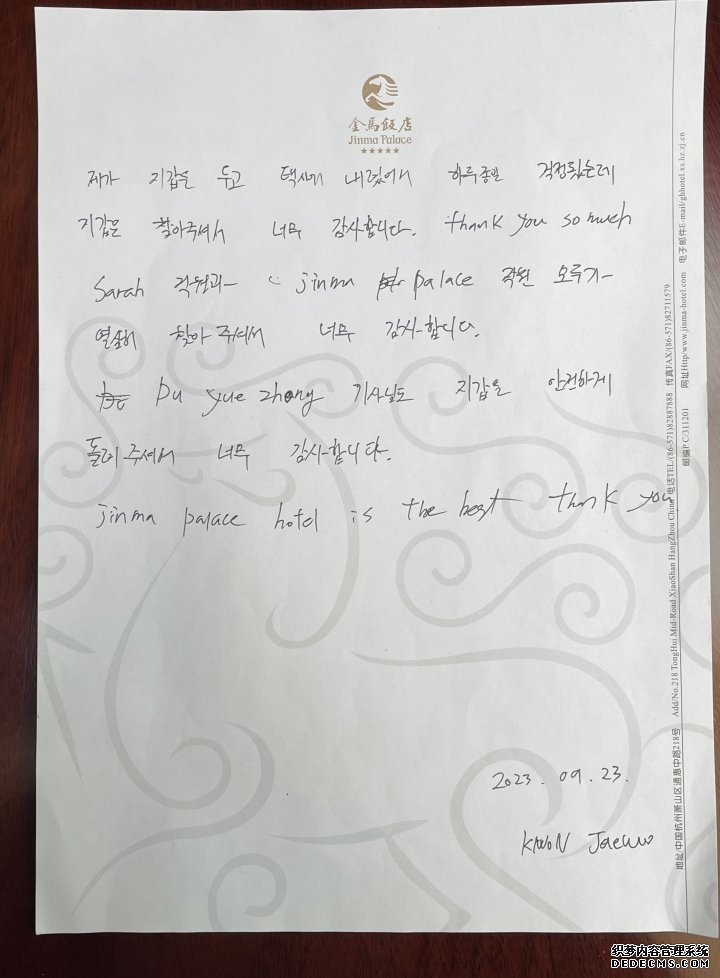 金馬飯店
Jinma Palace
★★★★★
제가 지갑을 두고 택시에 내렸어서 하루종일 걱정됬는데
지갑을 찾아주셔서 너무 감사합니다. thank you so much
Sarah 직원과 jinma palace 직원 모두가
열심히 찾아 주셔서 너무 감사합니다.
Du yue zhong 기사님도 지갑을 안전하게
돌려 주셔서 너무 감사합니다.
jinma palace hotel is the best thank you
2023.09.23.
KWON Jaewoo
地址/中国杭州萧山区通惠中路218号 Add/No.218 TongHui Mid-Road XiaoShan HangZhou China 电话TEL/(86-571)82887888 传真FAX/(86-571)82711579
邮编P.C/311201 网址Http/www.jinma-hotel.com 电子邮件E-mail/ghhotel.xs.hz.zj.cn
织梦内容管理系统
DEDECMS.COM